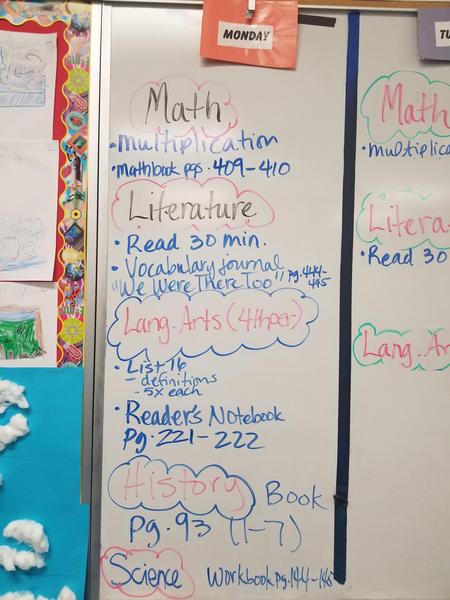 MONDAY
TU
Math
• multiplication
• mathbook pgs. 409-410
Literature
• Read 30 min.
• Vocabulary journal
"We Were There Too" pg. 444-
445
Lang. Arts (4th per)
• List 16
- definitions
- 5x each
• Reader's Notebook
Pg. 221-222
History Book
Pg. 93 (1-7)
Science Workbook pg. 144-145
Math
• multiplica
Litera
• Read 30
Lang. Ar